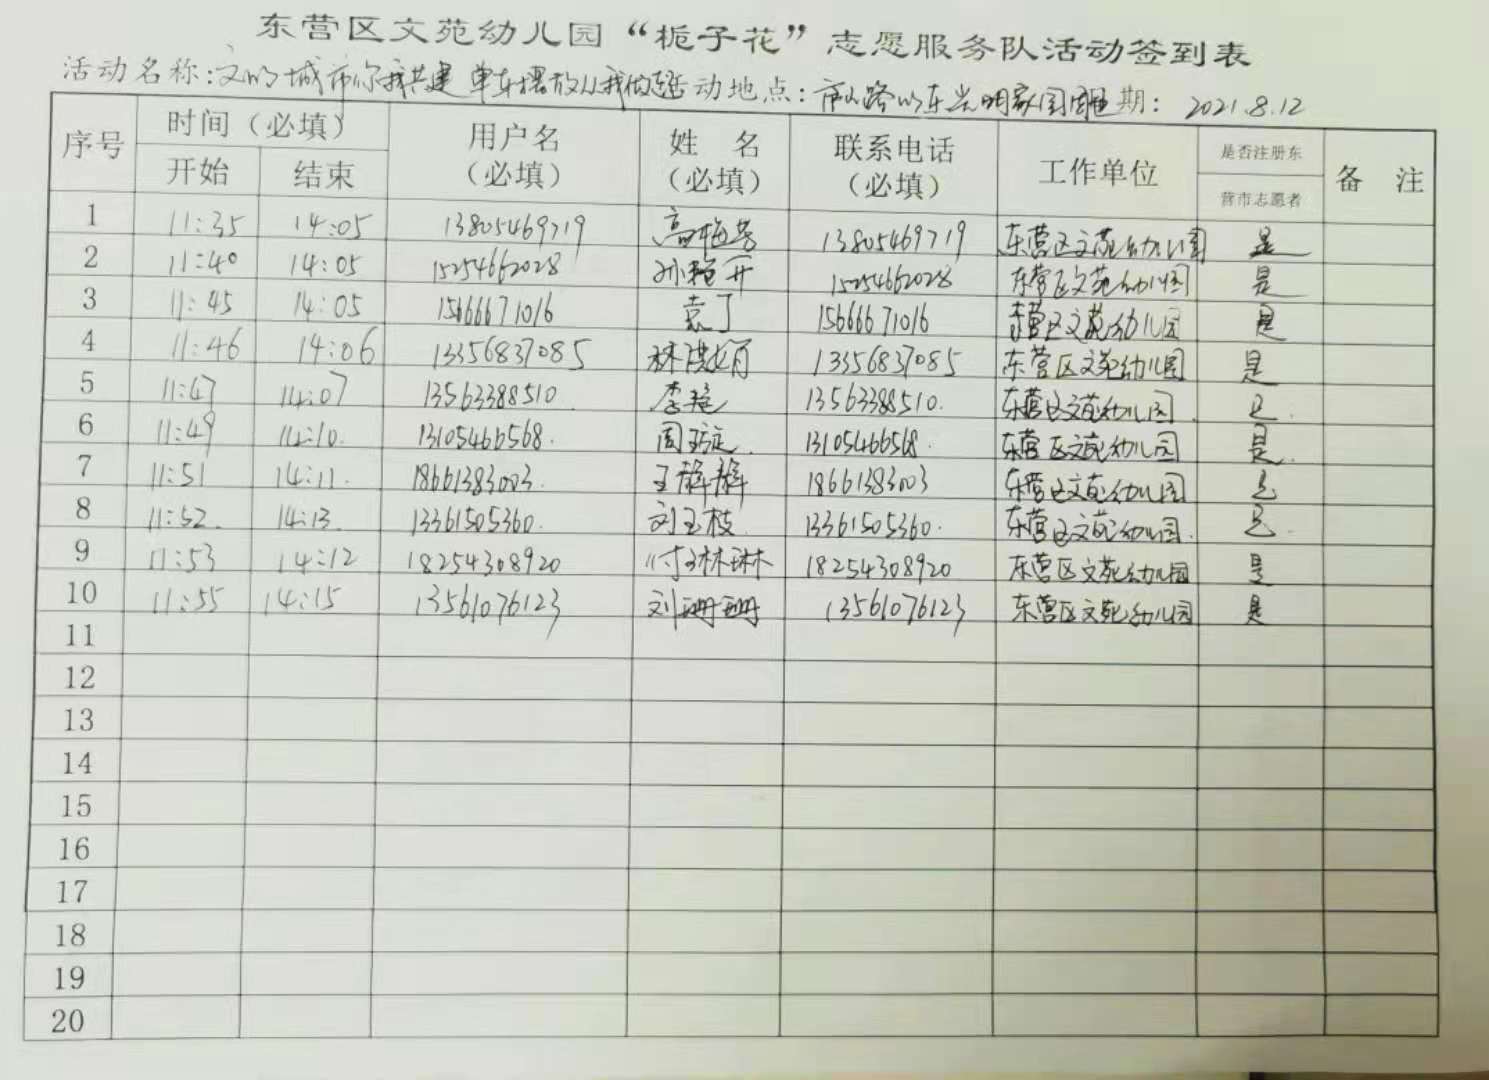 东营区文苑幼儿园“栀子花”志愿服务队活动签到表
活动名称:文明城市你我共建 单车摆放从我做起 活动地点: 东 明家园周围 日期: 2021.8.12
序号 时间(必填) 用户名(必填) 姓 名(必填) 联系电话(必填) 工作单位 是否注册东营市志愿者 备 注
开始 结束
1 11:35 14:05 13805469719 高梅芳 13805469719 东营区文苑幼儿园 是
2 11:40 14:05 15254662028 孙艳 15254662028 东营区文苑幼儿园 是
3 11:45 14:05 15666671016 袁丁 15666671016 东营区文苑幼儿园 是
4 11:46 14:06 13356837085 林洪 13356837085 东营区文苑幼儿园 是
5 11:47 14:07 13563388510. 李艳 13563388510. 东营区文苑幼儿园. 是.
6 11:49 14:10. 13105466568. 周 13105466568. 东营区文苑幼儿园 是.
7 11:51 14:11. 18661383003. 王静静 18661383003 东营区文苑幼儿园 是
8 11:52. 14:13. 13361505360. 刘玉枝. 13361505360. 东营区文苑幼儿园. 是.
9 11:53 14:12 18254308920 付琳琳 18254308920 东营区文苑幼儿园 是
10 11:55 14:15 13561076123 刘珊珊 13561076123 东营区文苑幼儿园 是
11
12
13
14
15
16
17
18
19
20